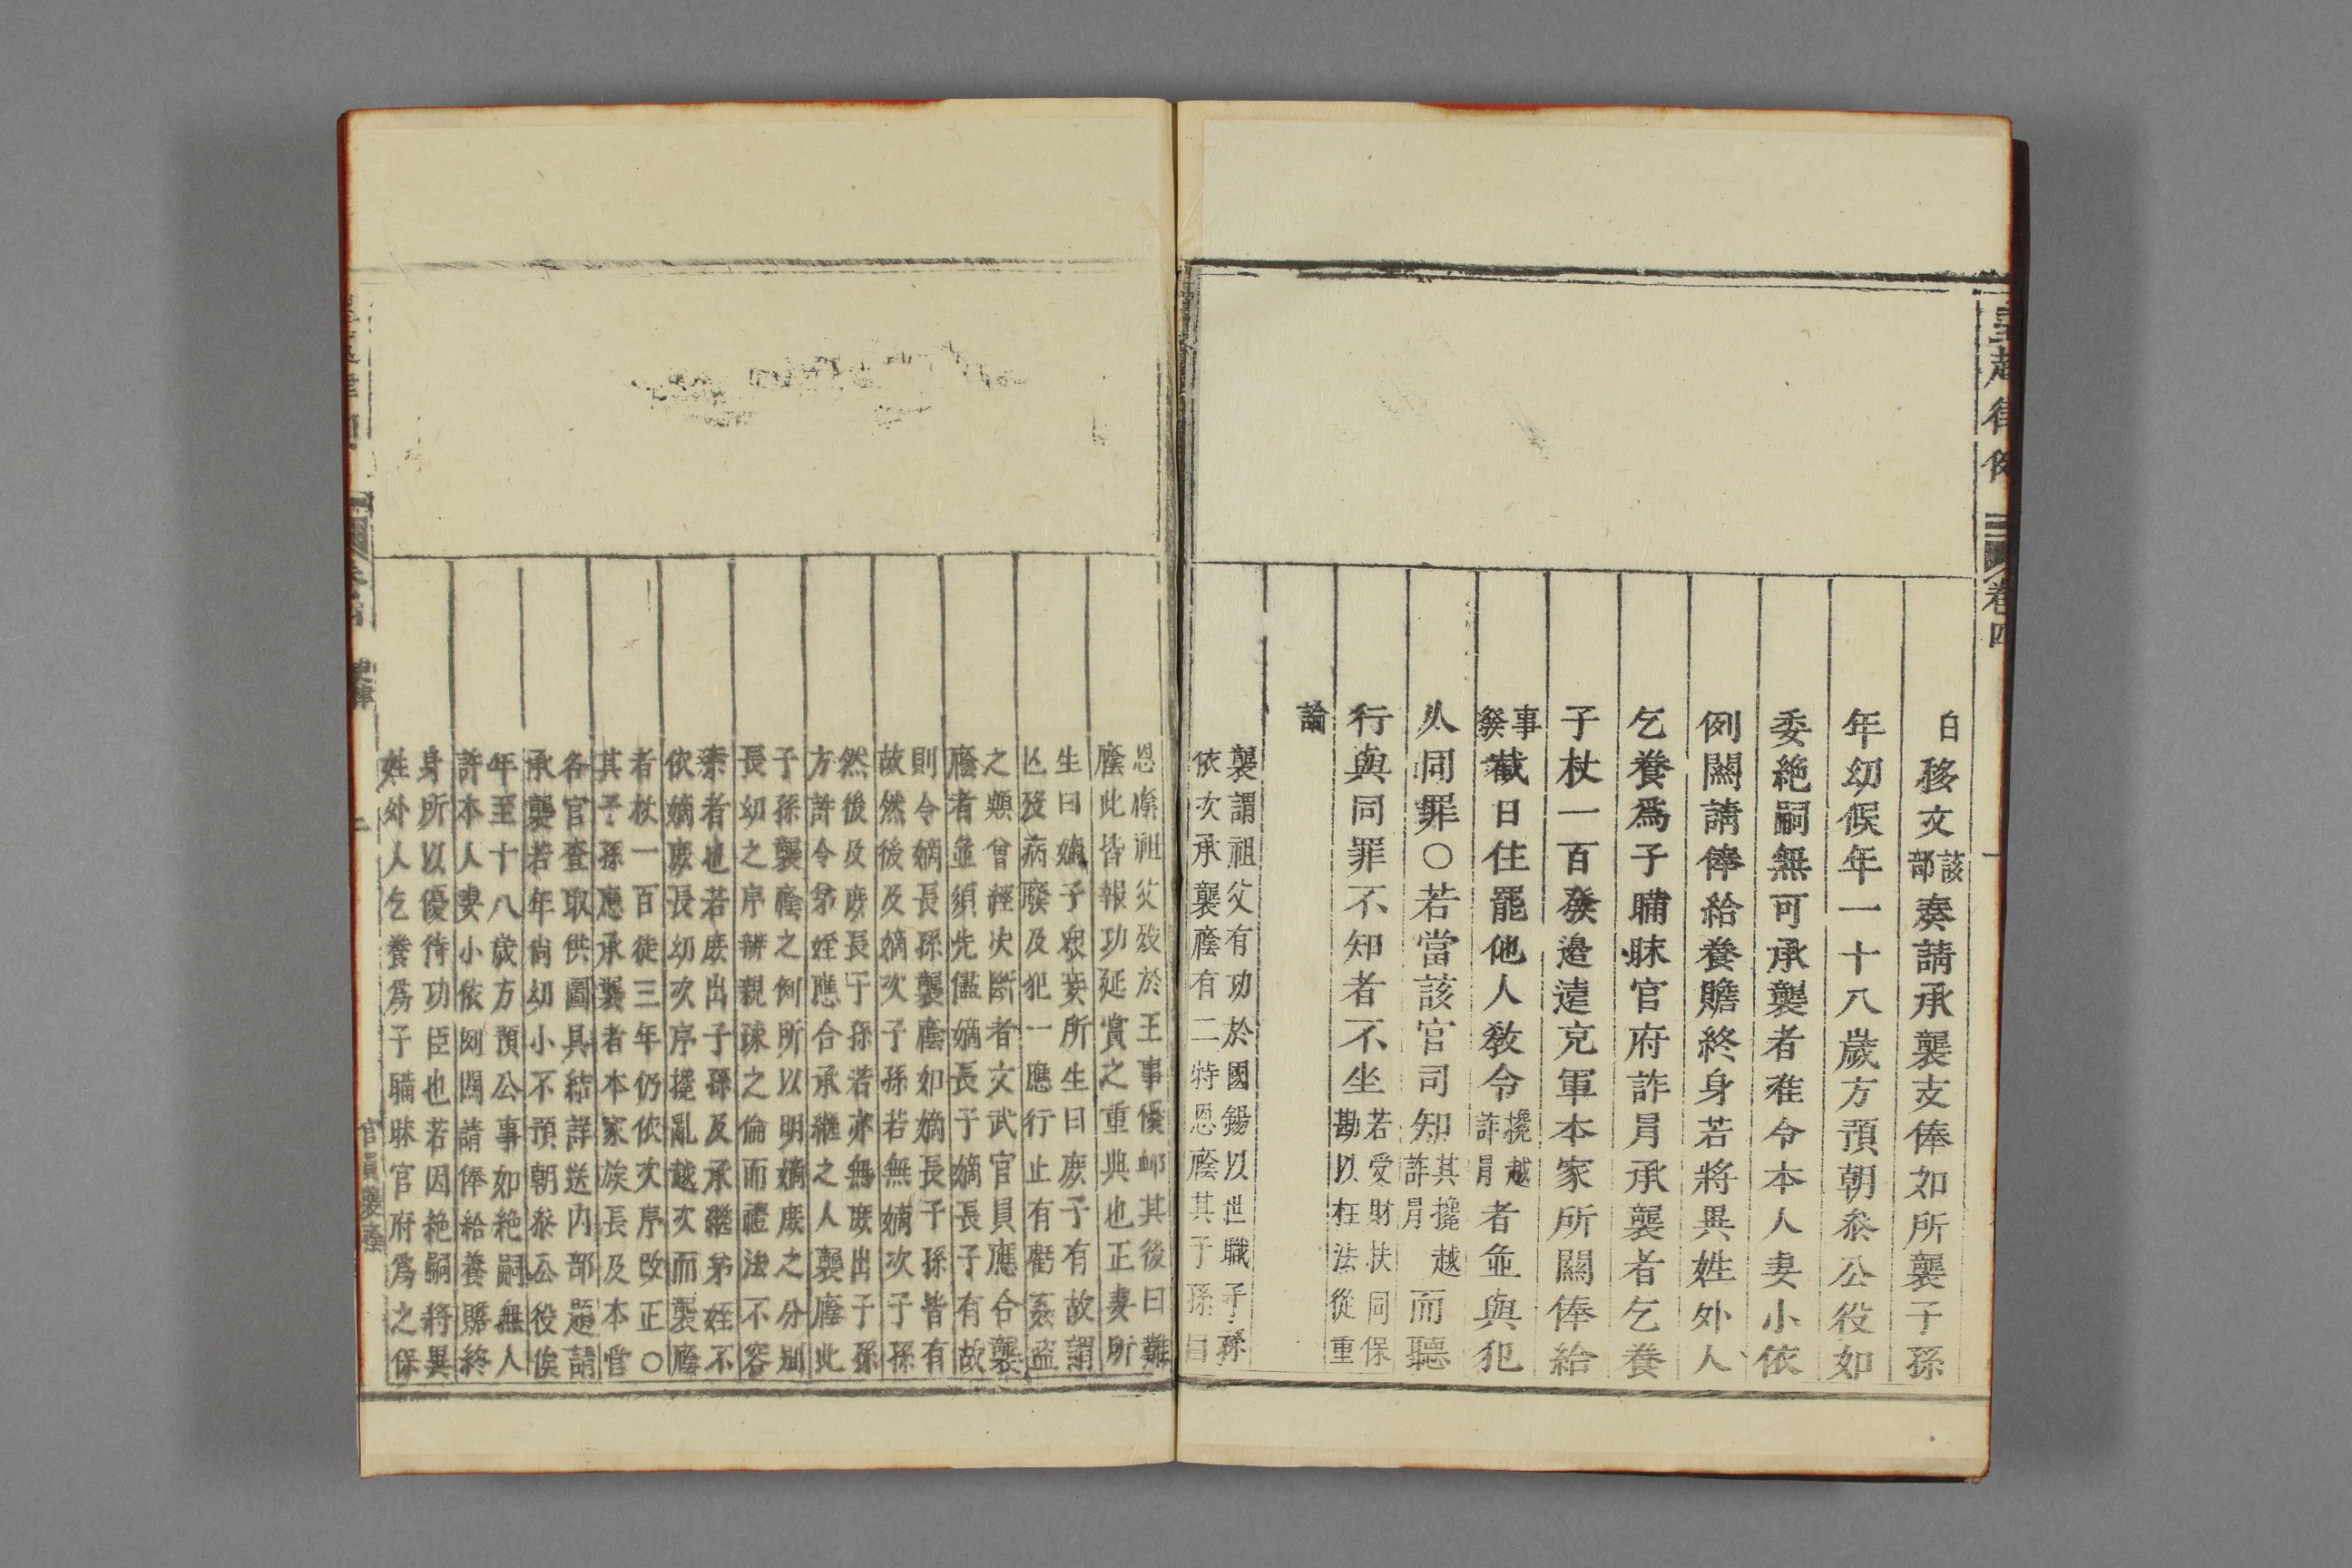 皇越律例 卷四
白移文該部奏請承襲支俸如所襲子孫
年幼候年一十八歲方預朝叅公役如
委絶嗣無可承襲者准令本人妻小依
例關請俸給養贍終身若將異姓外人
乞養爲子瞞昧官府詐冐承襲者乞養
子杖一百發邉遠充軍本家所關俸給
事發截日住罷他人敎令攙越詐冐者並與犯
人同罪○若當該官司知其攙越詐冐而聽
行與同罪不知者不坐若受財扶同保勘以枉法從重
論
襲謂祖父有功於國錫以世職子孫
依次承襲廕有二特恩廕其子孫曰
恩廕祖父歿於王事優䘏其後曰難
廕此皆報功延賞之重典也正妻所
生曰嫡子衆妾所生曰庻子有故謂
亾歿病廢及犯一應行止有虧姦盗
之類曾經决斷者文武官員應合襲
廕者並須先儘嫡長子嫡長子有故
則令嫡長孫襲廕如嫡長子孫皆有
故然後及嫡次子孫若無嫡次子孫
然後及庻長子孫若亦無庻出子孫
方許令弟姪應合承繼之人襲廕此
子孫襲廕之例所以明嫡庻之分别
長幼之序辨親疎之倫而禮法不容
紊者也若庻出子孫及承繼弟姪不
依嫡庻長幼次序攙亂越次而襲廕
者杖一百徒三年仍依次序改正○
其子孫應承襲者本家族長及本管
各官查取供圖具結詳送内部題請
承襲若年尙幼小不預朝叅公役俟
年至十八歲方預公事如絶嗣無人
許本人妻小依例關請俸給養贍終
身所以優待功臣也若因絶嗣將異
姓外人乞養爲子瞞昧官府爲之保
吏律 二 官員襲廕